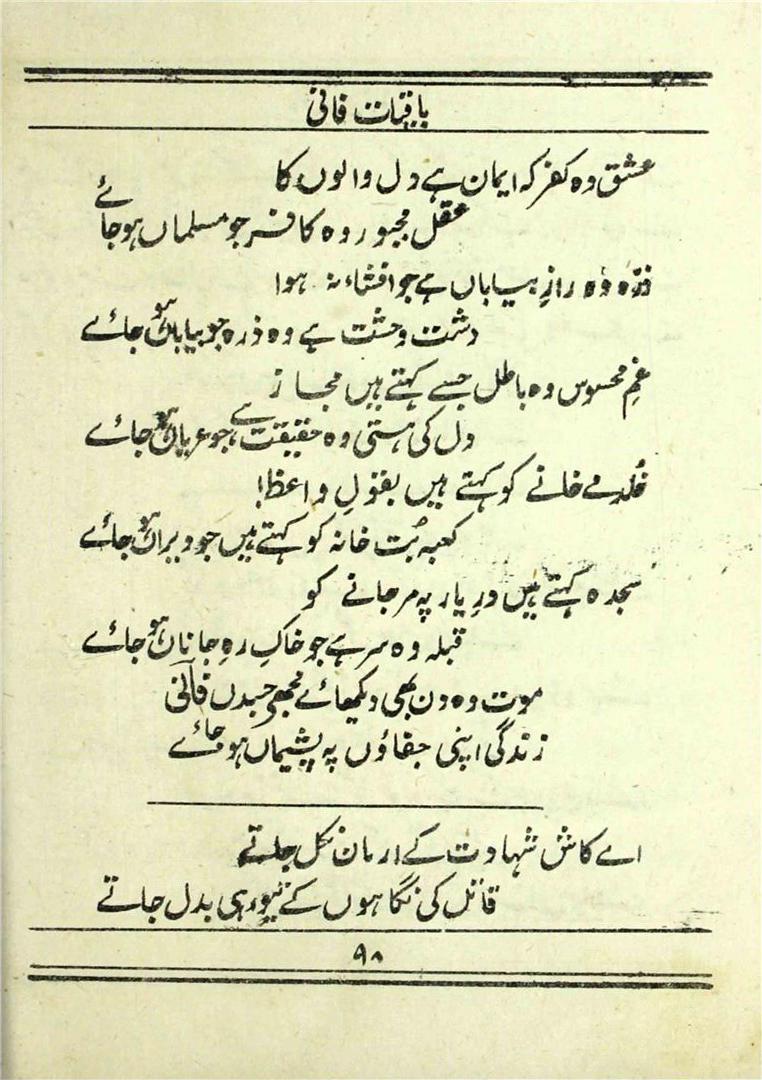 باقیات فانی
عشق وہ کفر کہ ایمان ہے دل والوں کا
عقل مجبور وہ کافر جو مسلماں ہو جائے
ذرّہ وہ رازِ بیاباں ہے جو افشاء نہ ہوا
دشت وحشت ہے وہ ذرہ جو بیاباں ہو جائے
غمِ محسوس وہ باطل جسے کہتے ہیں مجاز
دل کی ہستی وہ حقیقت ہے جو عریاں ہو جائے
خُلد مے خانے کو کہتے ہیں بقولِ واعظ!
کعبہ بُت خانہ کو کہتے ہیں جو ویراں ہو جائے
سجدہ کہتے ہیں درِ یار پہ مر جانے کو
قبلہ وہ سر ہے جو خاکِ رہِ جاناں ہو جائے
موت وہ دن بھی دکھائے مجھے جس دن فانی
زندگی اپنی جفاؤں پہ پشیماں ہو جائے
اے کاش شہادت کے ارمان نکل جاتے
قاتل کی نگاہوں کے تیور ہی بدل جاتے
۹۰